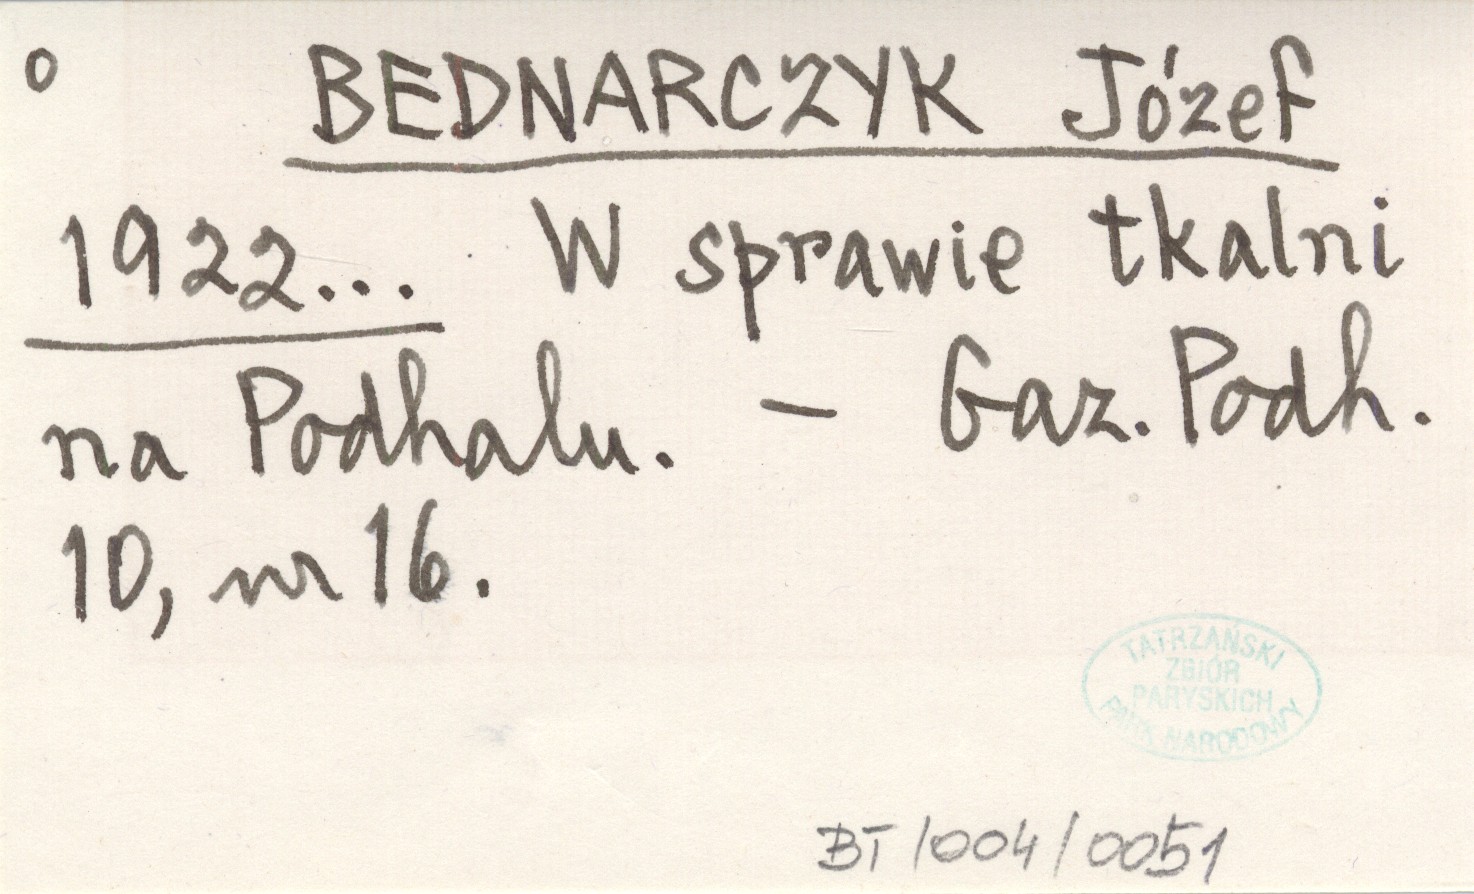 o BEDNARCZYK Józef
1922... W sprawie tkalni
na Podhalu. – Gaz. Podh.
10, nr 16.
TATRZAŃSKI
ZBIÓR
PARYSKICH
PARK NARODOWY
BT/004/0051